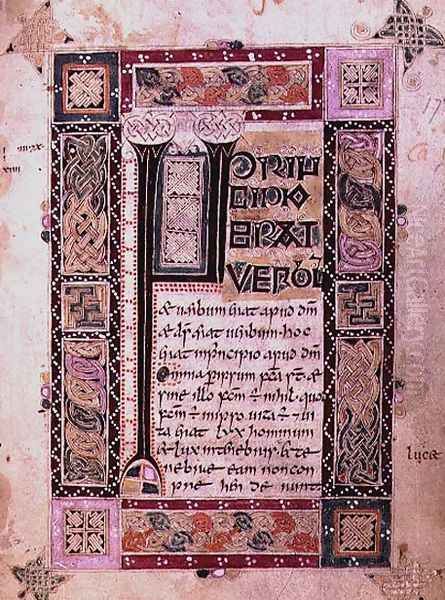 IN PRIN
CIPIO
ERAT
VERBŪ
& uerbum erat apud dm̄
& ds̄ erat uerbum hoc
erat in principio apud dm̄
Omnia per ipsum fc̄a st̄ &
sine illo fc̄m ÷ nihil quod
fc̄m ÷ in ipso uita ÷ & uita
erat lux hominum
& lux in tenebris lucet & te
nebrae eam non con
prehenderunt